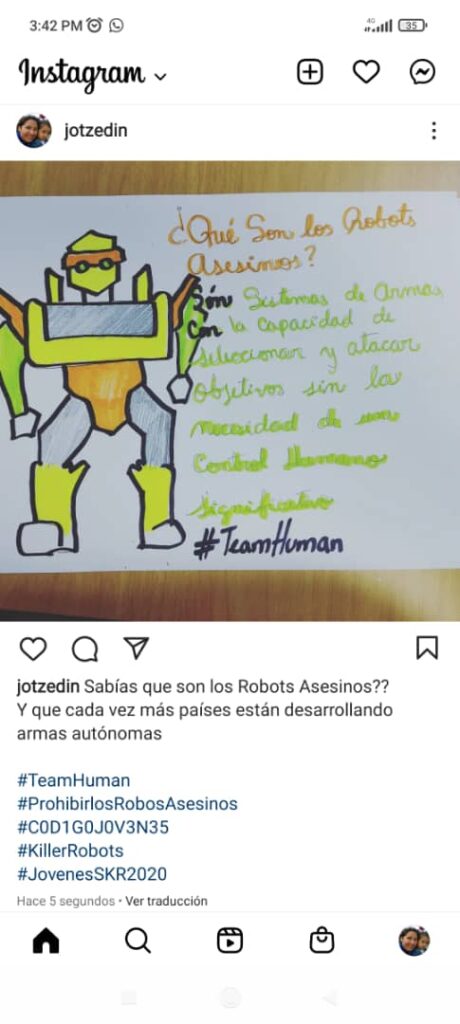 3:42 PM
4G
35
Instagram
jotzedin
¿Qué Son los Robots
Asesinos?
Són Sistemas de Armas
Con la capacidad de
seleccionar y atacar
objetivos sin la
necesidad de un
Control Humano
significativo
#TeamHuman
jotzedin Sabías que son los Robots Asesinos??
Y que cada vez más países están desarrollando
armas autónomas
#TeamHuman
#ProhibirlosRobosAsesinos
#C0D1G0J0V3N35
#KillerRobots
#JovenesSKR2020
Hace 5 segundos · Ver traducción